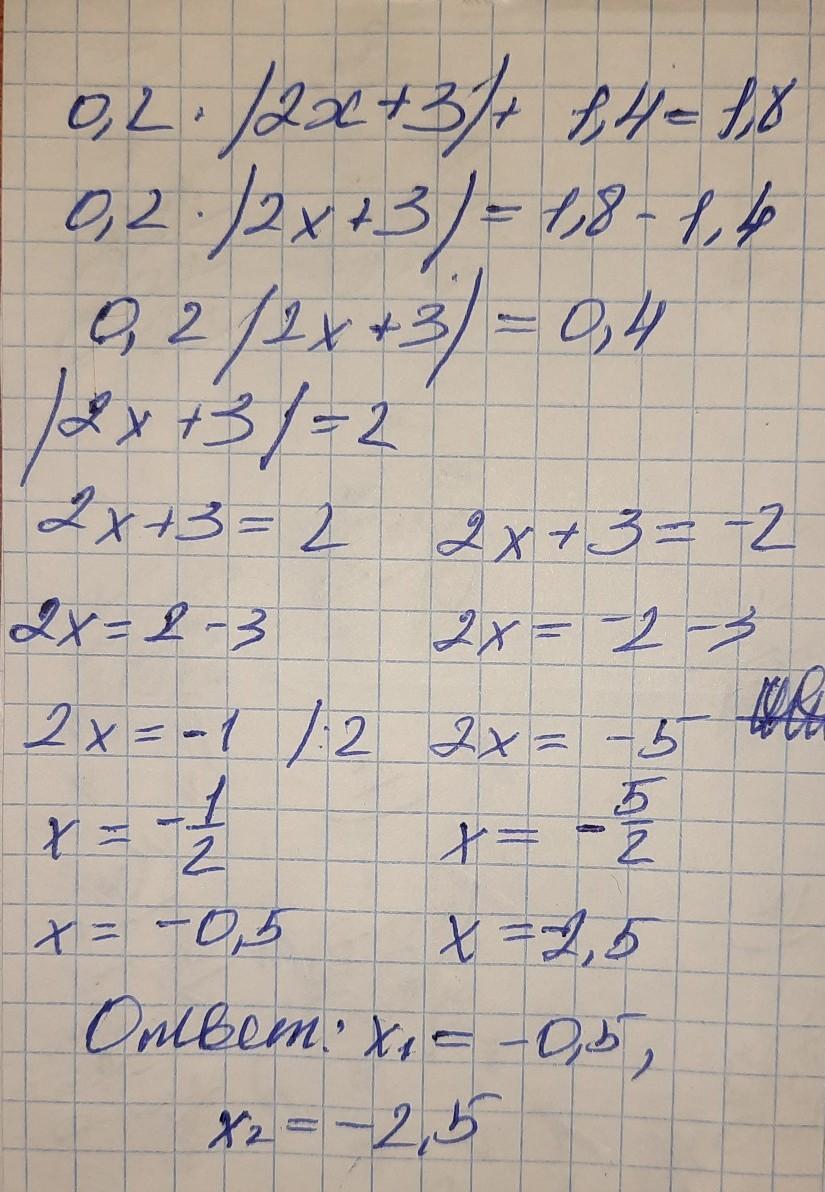 0,2 · |2x+3|+ 1,4=1,8
0,2 · |2x+3|=1,8-1,4
0,2 |2x+3|=0,4
|2x+3|=2
2x+3=2 2x+3=-2
2x=2-3 2x=-2-3
2x=-1 /:2 2x=-5
x=-1/2 x=-5/2
x=-0,5 x=-2,5
Ответ: x₁=-0,5,
x₂=-2,5